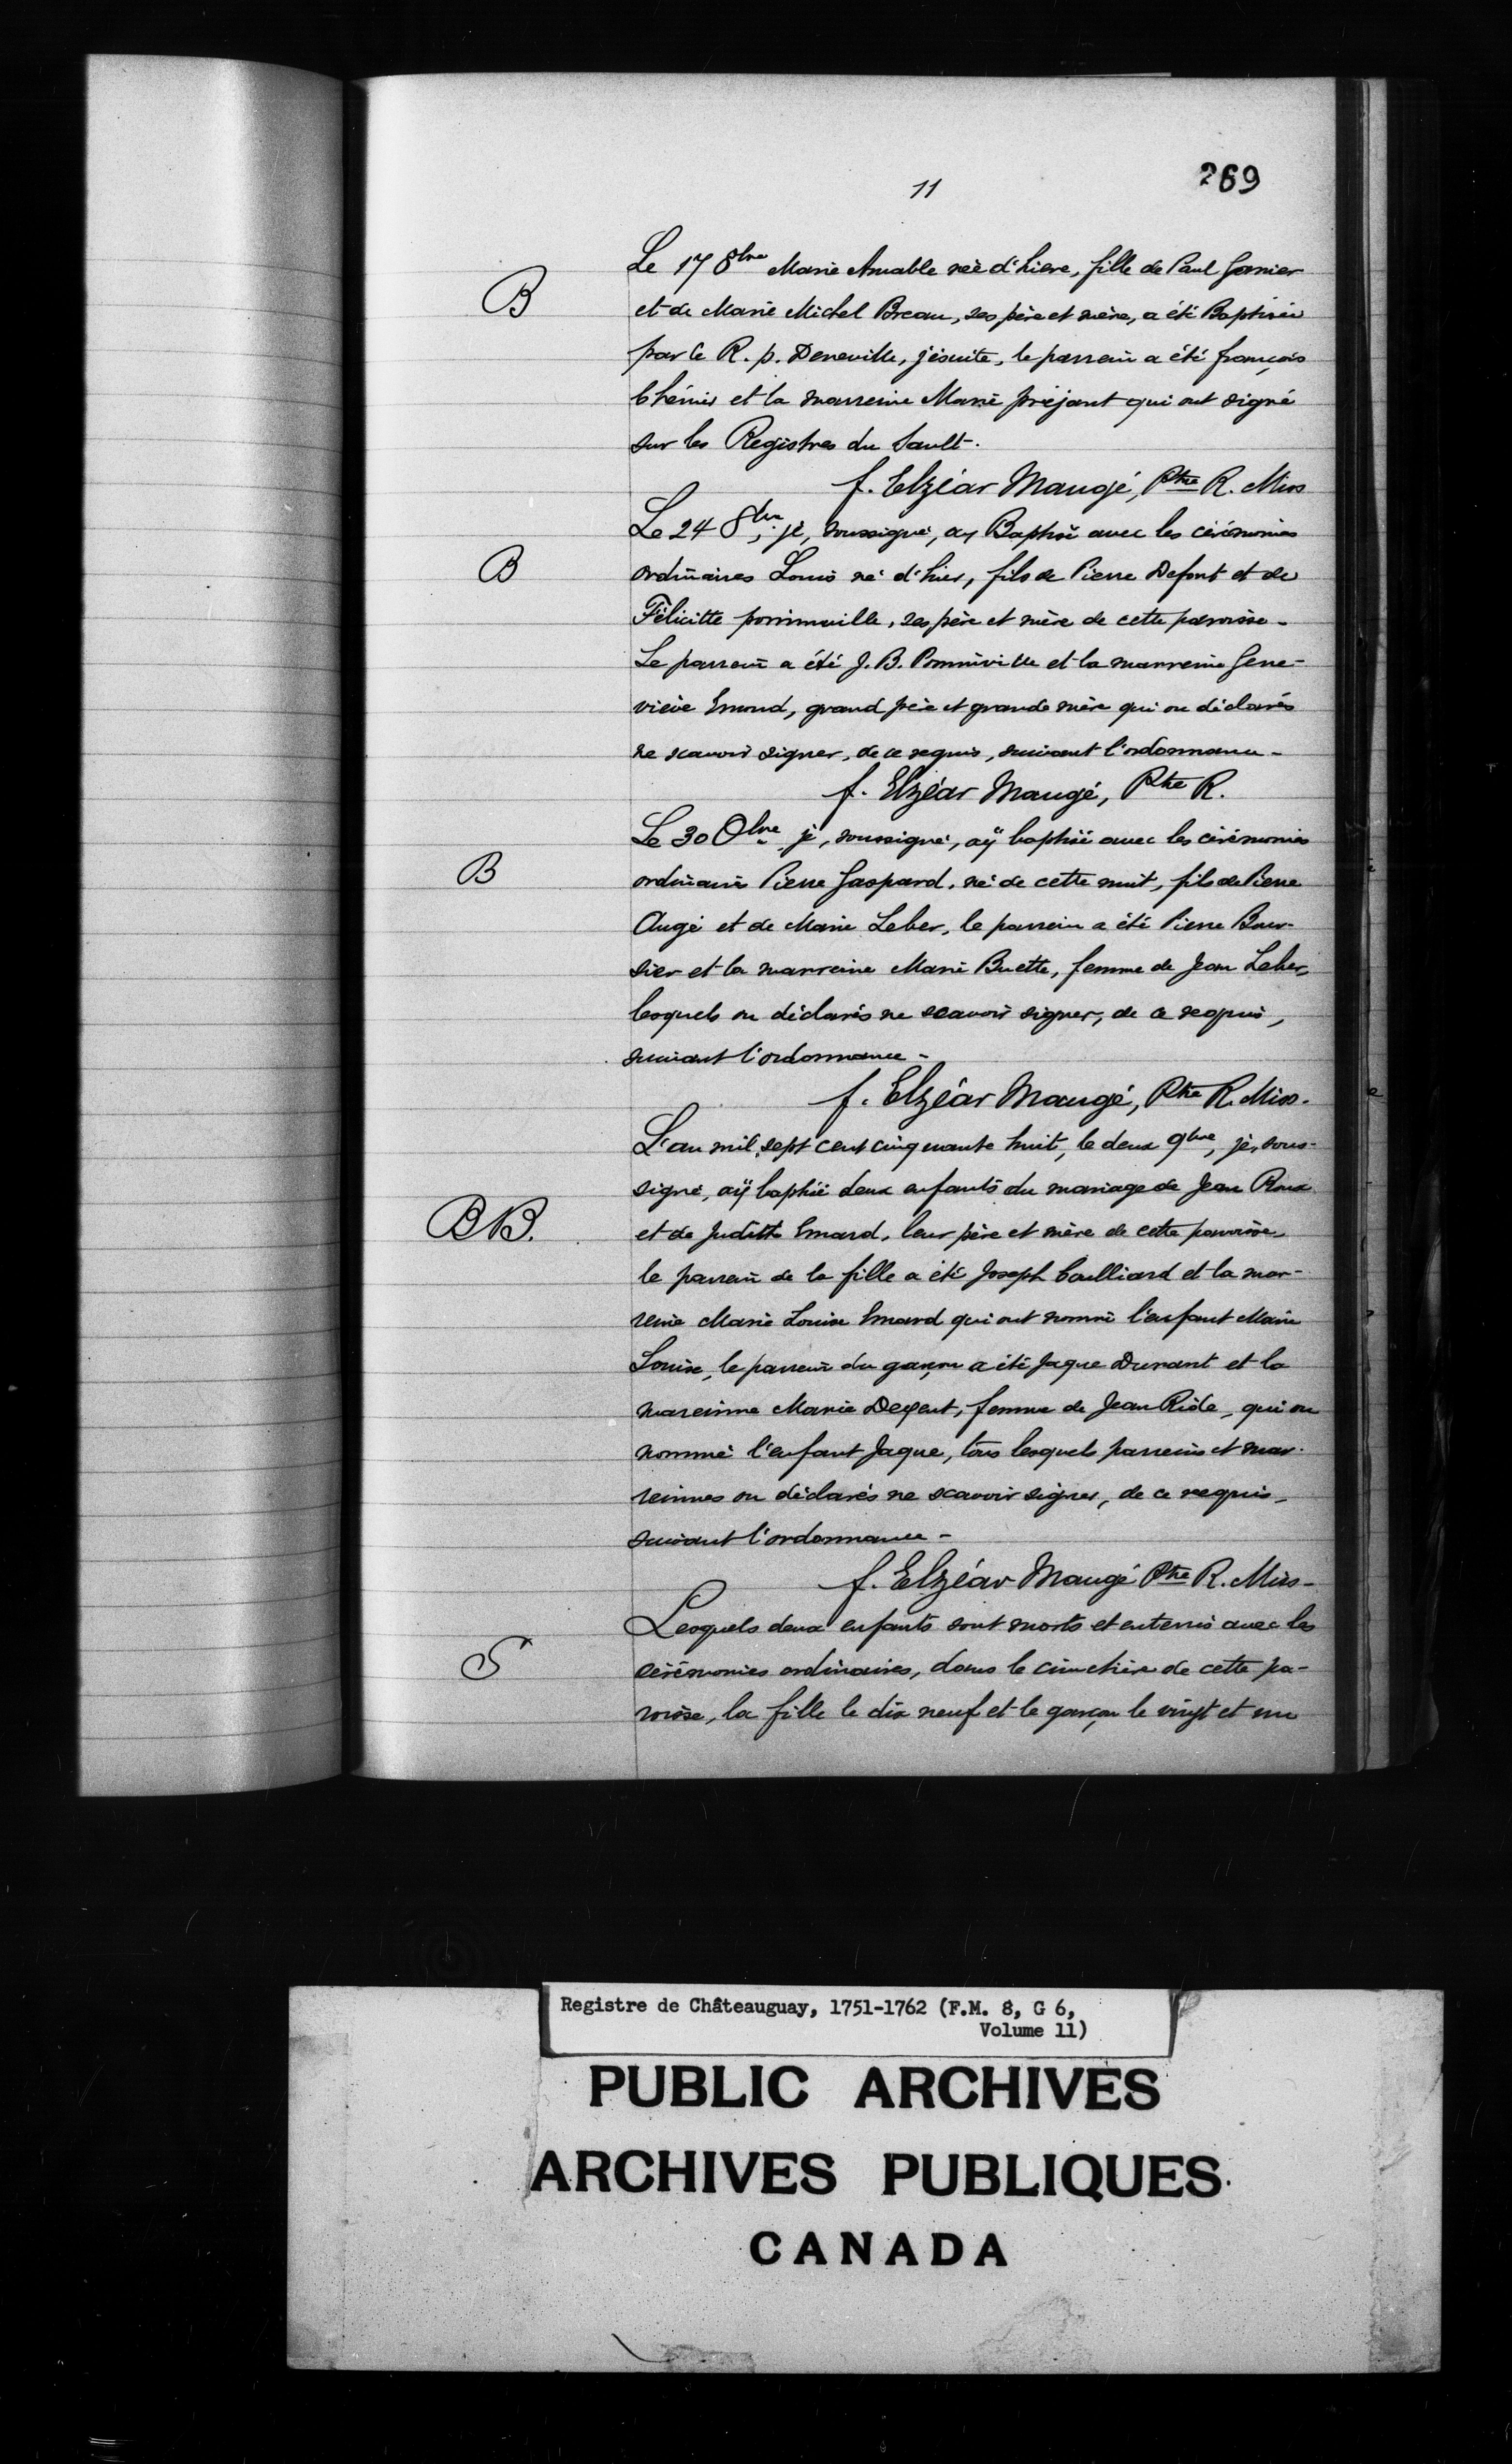 11
269
B
Le 17 8bre Marie Amable née d'hiere, fille de Paul Garnier
et de Marie Michel Breau, ses père et mère, a été Baptisée
par le R. p. Deneville, jésuite, le parrain a été françois
Chénier et la marreine Marie préjant qui ont signé
sur les Registres du Sault.
f. Elzéar Maugé, Ptre R. Miss
B
Le 24 8bre, je, soussigné, ay Baptisé avec les cérémonies
ordinaires Louis né d'hier, fils de Pierre Defont et de
Félicitte pominville, ses père et mère de cette paroisse -
Le parrein a été J. B. Pominville et la marreine Gene-
viève Emond, grand père et grande mère qui on déclarés
ne scavoir signer, de ce requis, suivant l'ordonnance -
f. Elzéar Maugé, Ptre R.
B
Le 30 Obre je, soussigné, aÿ baptisé avec les cérémonies
ordinaires Pierre Gaspard, né de cette nuit, fils de Pierre
Augé et de Marie Leber, le parrein a été Pierre Bour-
sier et la marraine Marie Buette, femme de Jean Leber,
lesquels on déclarés ne scavoir signer, de ce requis,
suivant l'ordonnance -
f. Elzéar Maugé, Ptre R. Miss.
BB.
L'an mil sept cent cinquante huit, le deux 9bre, je, sous-
signé, aÿ baptisé deux enfants du mariage de Jean Roux
et de Juditte Emard, leur père et mère de cette paroisse,
le parrain de la fille a été Joseph Caulliard et la mar-
reine Marie Louise Emard qui ont nommé l'enfant Marie
Louise, le parrein du garçon a été Jaque Durant et la
mareinne Marie Degent, femme de Jean Ride, qui on
nommé l'enfant Jaque, tous lesquels parreins et mar-
reinnes on déclarés ne scavoir signer, de ce requis,
suivant l'ordonnance -
f. Elzéar Maugé Ptre R. Miss -
S
Lesquels deux enfants sont morts et enterrés avec les
cérémonies ordinaires, dans le cimetière de cette pa-
roisse, la fille le dix neuf et le garçon le vingt et un
Registre de Châteauguay, 1751-1762 (F.M. 8, G 6,
Volume 11)
PUBLIC ARCHIVES
ARCHIVES PUBLIQUES
CANADA